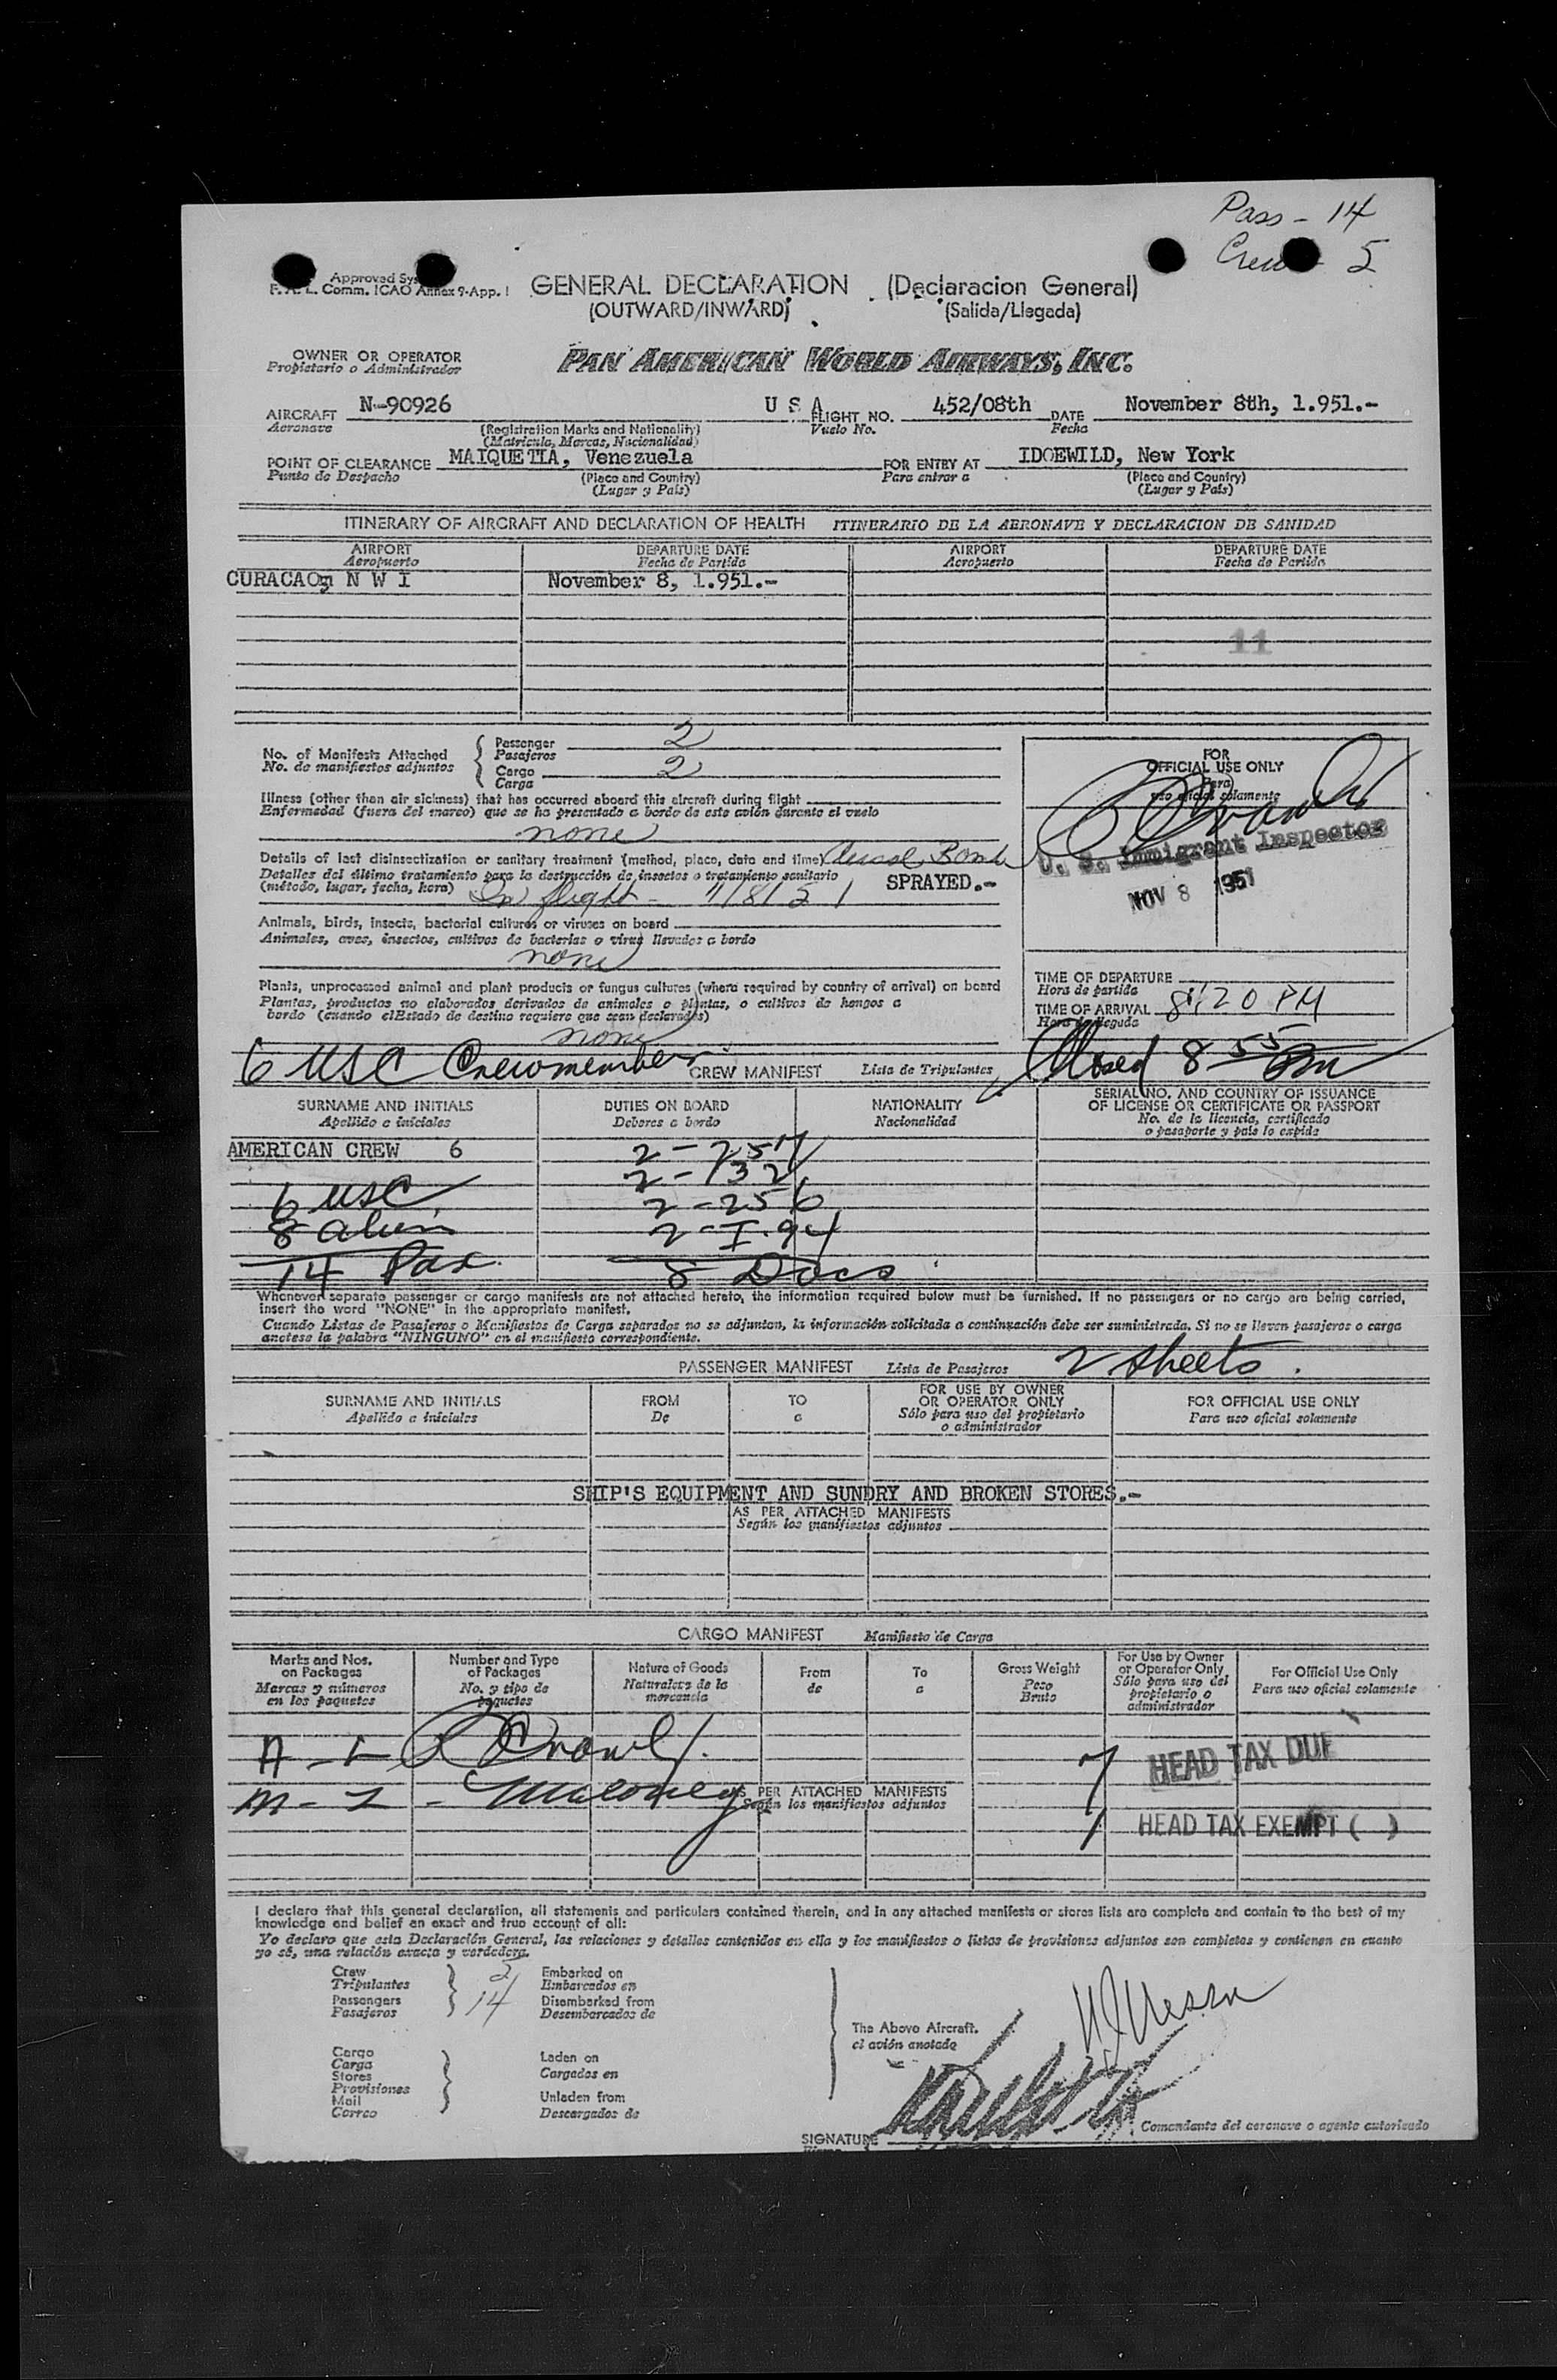 Pass - 14
Crew - 5
Approved
Comm. ICAO Annex 9-App. I
GENERAL DECLARATION (Declaracion General)
(OUTWARD/INWARD) (Salida/Llegada)
OWNER OR OPERATOR
Propietario o Administrador
PAN AMERICAN WORLD AIRWAYS, INC.
AIRCRAFT N-90926 U S A FLIGHT NO. 452/08th DATE November 8th, 1.951.-
Aeronave (Registration Marks and Nationality) Vuelo No. Fecha
(Matricula, Marcas, Nacionalidad)
POINT OF CLEARANCE MAIQUETIA, Venezuela FOR ENTRY AT IDOEWILD, New York
Punto de Despacho (Place and Country) Para entrar a (Place and Country)
(Lugar y País) (Lugar y País)
ITINERARY OF AIRCRAFT AND DECLARATION OF HEALTH ITINERARIO DE LA AERONAVE Y DECLARACION DE SANIDAD
AIRPORT DEPARTURE DATE AIRPORT DEPARTURE DATE
Aeropuerto Fecha de Partida Aeropuerto Fecha de Partida
CURACAO, N W I November 8, 1.951.-
11
No. of Manifests Attached
No. de manifiestos adjuntos
Passenger 2
Pasajeros
Cargo 2
Carga
FOR
OFFICIAL USE ONLY
Para
uso oficial solamente
Illness (other than air sickness) that has occurred aboard this aircraft during flight
Enfermedad (fuera del mareo) que se ha presentado a bordo de este avión durante el vuelo
none
U. S. Immigrant Inspector
NOV 8 1951
Details of last disinsectization or sanitary treatment (method, place, date and time)
Detalles del último tratamiento para la destrucción de insectos o tratamiento sanitario
(método, lugar, fecha, hora) In flight - 11/8/51 SPRAYED.-
Animals, birds, insects, bacterial cultures or viruses on board
Animales, aves, insectos, cultivos de bacterias o virus llevados a bordo
none
Plants, unprocessed animal and plant products or fungus cultures (where required by country of arrival) on board
Plantas, productos no elaborados derivados de animales o plantas, o cultivos de hongos a
bordo (cuando el Estado de destino requiere que sean declarados)
none
TIME OF DEPARTURE
Hora de partida
TIME OF ARRIVAL 8:20 PM
Hora de llegada
6 USC Crewmember Closed 8 55 Pm
CREW MANIFEST Lista de Tripulantes
SURNAME AND INITIALS DUTIES ON BOARD NATIONALITY SERIAL NO. AND COUNTRY OF ISSUANCE
OF LICENSE OR CERTIFICATE OR PASSPORT
Apellido e iniciales Deberes a bordo Nacionalidad No. de la licencia, certificado
o pasaporte y país lo expide
AMERICAN CREW 6 2 - 257
2 - 132
6 USC 2 - 256
8 alien 2 - I.94
14 Pax. 8 Docs
Whenever separate passenger or cargo manifests are not attached hereto, the information required below must be furnished. If no passengers or no cargo are being carried,
insert the word "NONE" in the appropriate manifest.
Cuando Listas de Pasajeros o Manifiestos de Carga separados no se adjuntan, la información solicitada a continuación debe ser suministrada. Si no se lleven pasajeros o carga
anotese la palabra "NINGUNO" en el manifiesto correspondiente.
PASSENGER MANIFEST Lista de Pasajeros 2 sheets.
SURNAME AND INITIALS FROM TO FOR USE BY OWNER
OR OPERATOR ONLY FOR OFFICIAL USE ONLY
Apellido e iniciales De a Sólo para uso del propietario
o administrador Para uso oficial solamente
SHIP'S EQUIPMENT AND SUNDRY AND BROKEN STORES.-
AS PER ATTACHED MANIFESTS
Según los manifiestos adjuntos
CARGO MANIFEST Manifiesto de Carga
Marks and Nos.
on Packages
Marcas y números
en los paquetes
Number and Type
of Packages
No. y tipo de
paquetes
Nature of Goods
Naturaleza de la
mercancia
From
de
To
a
Gross Weight
Peso
Bruto
For Use by Owner
or Operator Only
Sólo para uso del
propietario o
administrador
For Official Use Only
Para uso oficial solamente
7 HEAD TAX DUE
M - 2 - Maloney
AS PER ATTACHED MANIFESTS
Según los manifiestos adjuntos
1 HEAD TAX EXEMPT ( )
I declare that this general declaration, all statements and particulars contained therein, and in any attached manifests or stores lists are complete and contain to the best of my
knowledge and belief an exact and true account of all:
Yo declaro que esta Declaración General, las relaciones y detalles contenidos en ella y los manifiestos o listas de provisiones adjuntos son completos y contienen en cuanto
yo sé, una relación exacta y verdedera.
Crew 5 Embarked on
Tripulantes Embarcados en
Passengers 14 Disembarked from
Pasajeros Desembarcados de
The Above Aircraft.
el avión anotado
Cargo
Carga
Stores
Provisiones
Mail
Correo
Laden on
Cargados en
Unladen from
Descargados de
SIGNATURE
Comandante del aeronave o agente autorizado